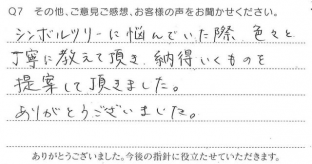 Q7 その他、ご意見ご感想、お客様の声をお聞かせください。
シンボルツリーに悩んでいた際 色々と
丁寧に教えて頂き 納得いくものを
提案して頂きました。
ありがとうございました。
ありがとうございました。今後の指針に役立たせていただきます。